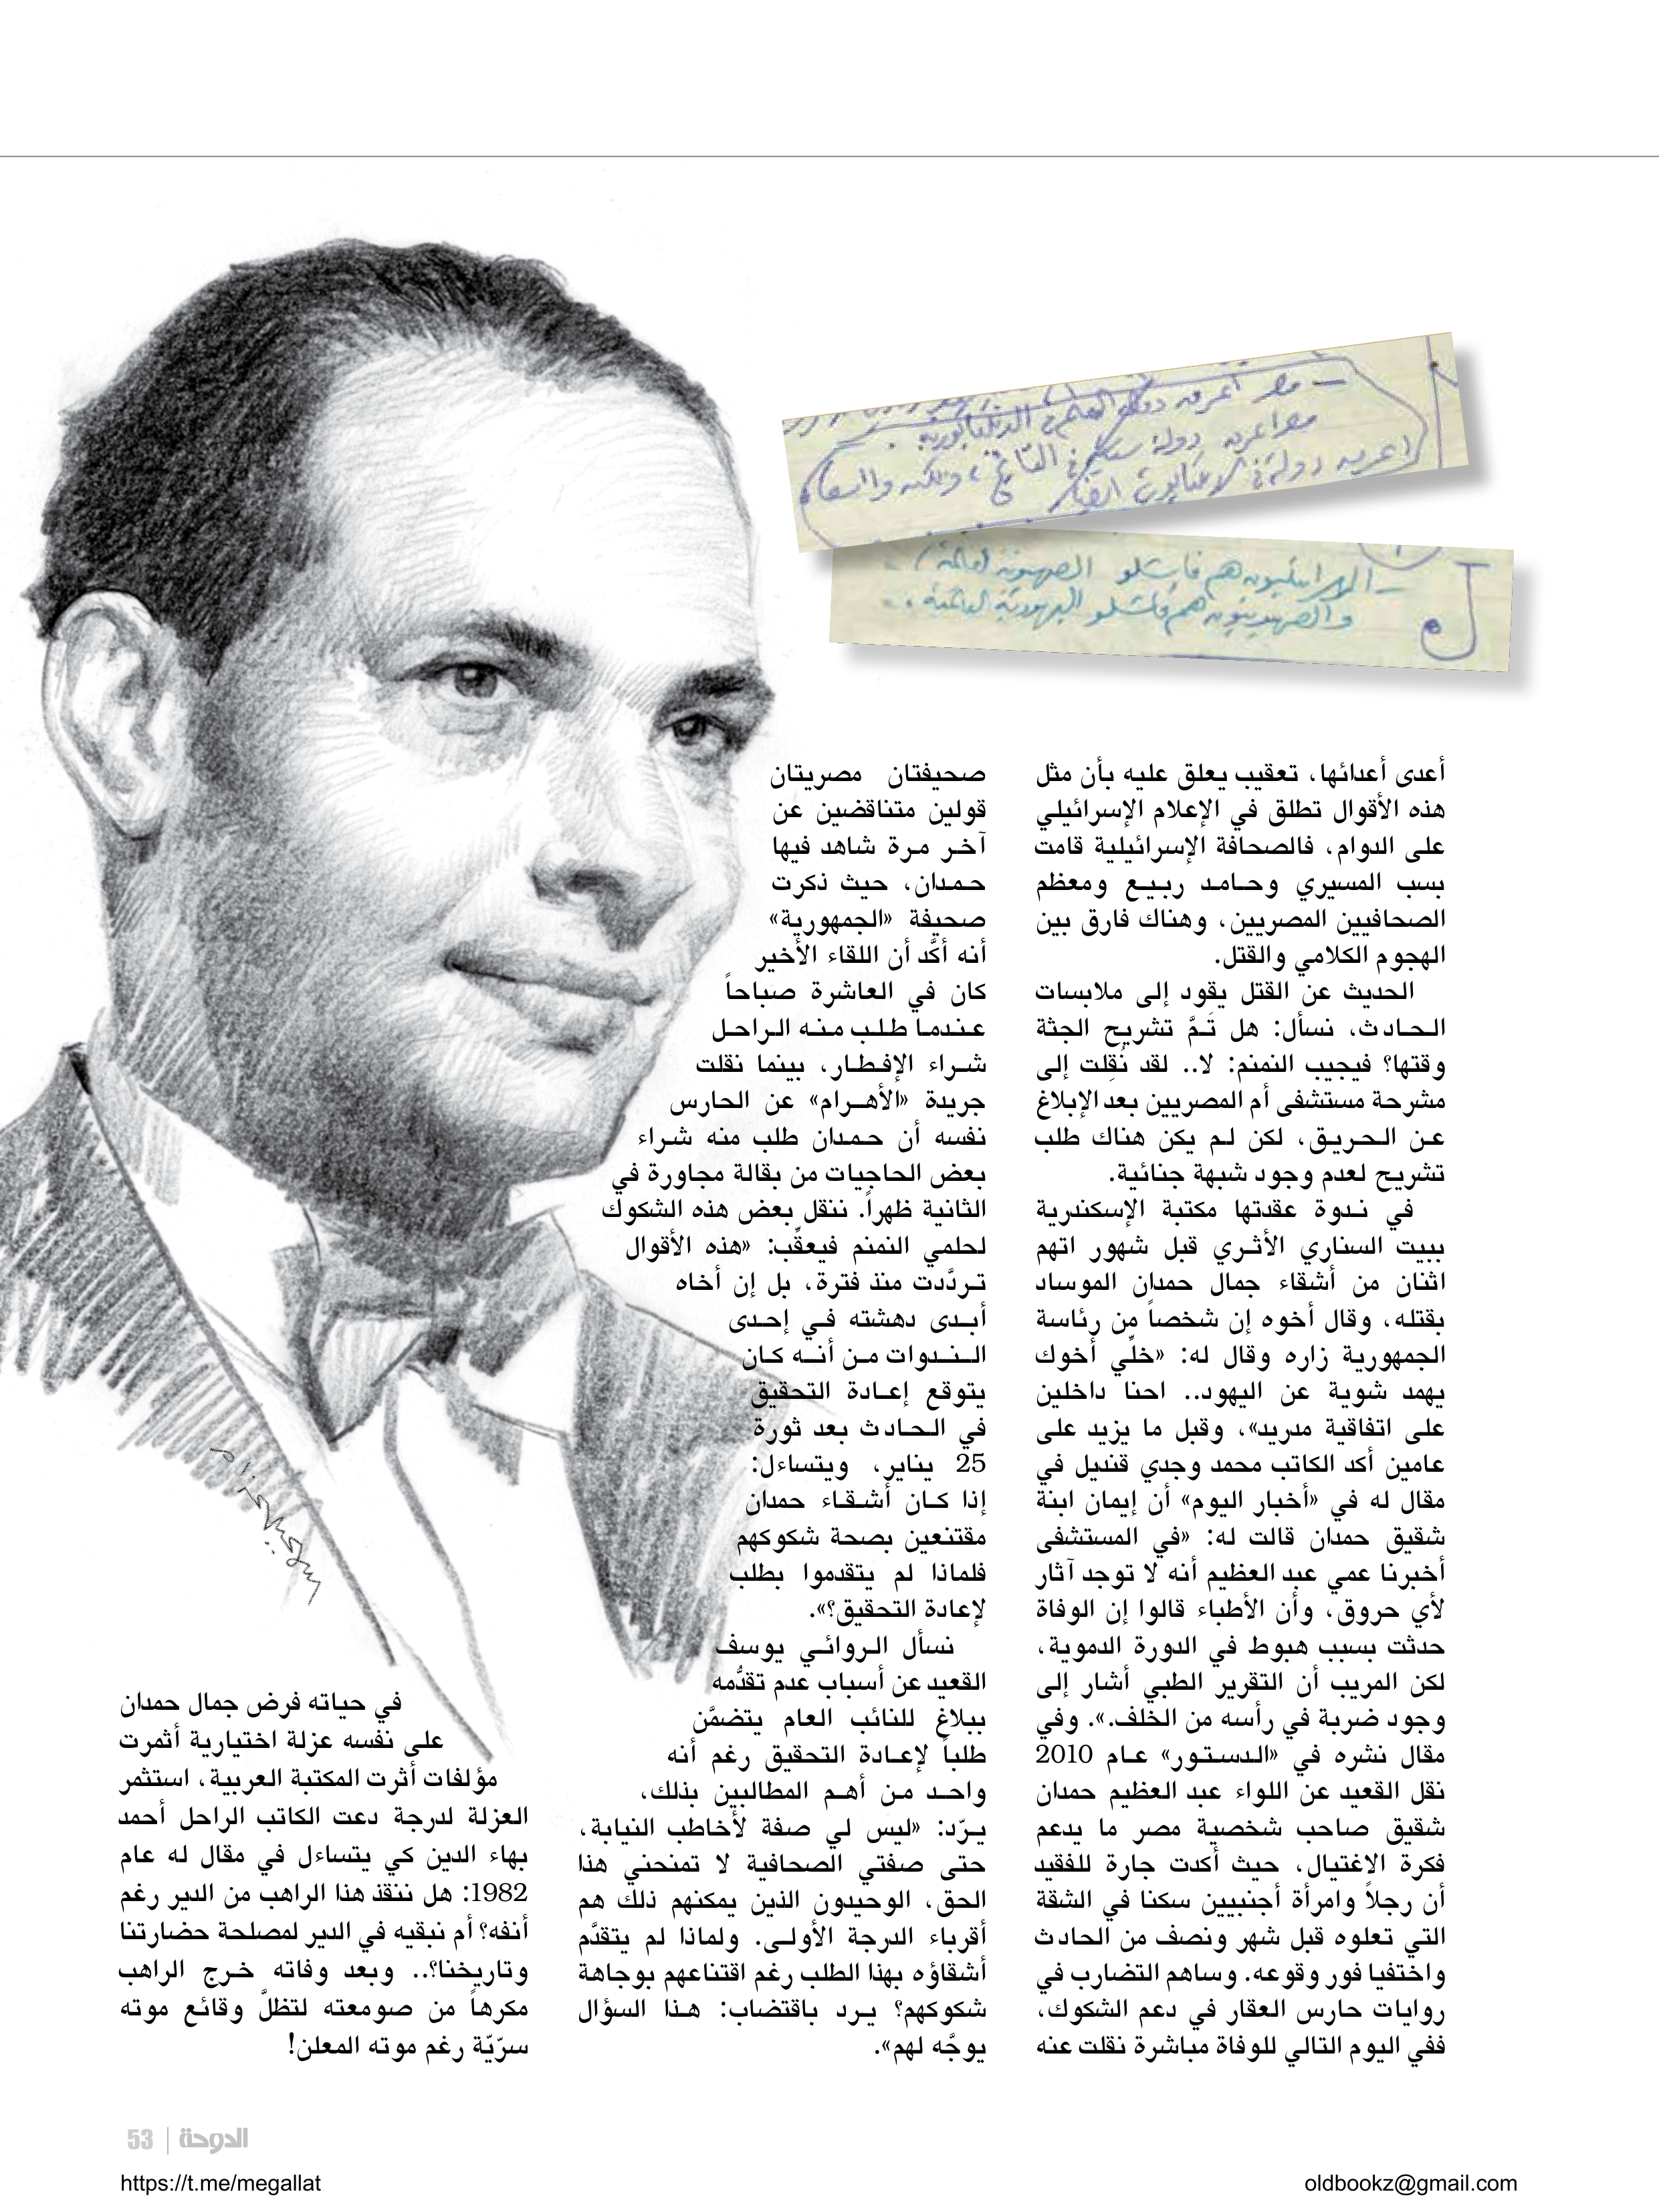 – مصر أعرق دولة
مصر أعرق دولة في التاريخ، ولكنه
أعرق دولة في
– الإسرائيليون هم فاشلو الصهيونية العالمية /
والصهيونيون هم فاشلو اليهودية العالمية .
أعدى أعدائها، تعقيب يعلق عليه بأن مثل
هذه الأقوال تطلق في الإعلام الإسرائيلي
على الدوام، فالصحافة الإسرائيلية قامت
بسب المسيري وحامد ربيع ومعظم
الصحافيين المصريين، وهناك فارق بين
الهجوم الكلامي والقتل.
الحديث عن القتل يقود إلى ملابسات
الحادث، نسأل: هل تَمَّ تشريح الجثة
وقتها؟ فيجيب النمنم: لا.. لقد نُقِلت إلى
مشرحة مستشفى أم المصريين بعد الإبلاغ
عن الحريق، لكن لم يكن هناك طلب
تشريح لعدم وجود شبهة جنائية.
في ندوة عقدتها مكتبة الإسكندرية
ببيت السناري الأثري قبل شهور اتهم
اثنان من أشقاء جمال حمدان الموساد
بقتله، وقال أخوه إن شخصاً من رئاسة
الجمهورية زاره وقال له: «خلّي أخوك
يهمد شوية عن اليهود.. احنا داخلين
على اتفاقية مدريد»، وقبل ما يزيد على
عامين أكد الكاتب محمد وجدي قنديل في
مقال له في «أخبار اليوم» أن إيمان ابنة
شقيق حمدان قالت له: «في المستشفى
أخبرنا عمي عبد العظيم أنه لا توجد آثار
لأي حروق، وأن الأطباء قالوا إن الوفاة
حدثت بسبب هبوط في الدورة الدموية،
لكن المريب أن التقرير الطبي أشار إلى
وجود ضربة في رأسه من الخلف.». وفي
مقال نشره في «الدستور» عام 2010
نقل القعيد عن اللواء عبد العظيم حمدان
شقيق صاحب شخصية مصر ما يدعم
فكرة الاغتيال، حيث أكدت جارة للفقيد
أن رجلاً وامرأة أجنبيين سكنا في الشقة
التي تعلوه قبل شهر ونصف من الحادث
واختفيا فور وقوعه. وساهم التضارب في
روايات حارس العقار في دعم الشكوك،
ففي اليوم التالي للوفاة مباشرة نقلت عنه
صحيفتان مصريتان
قولين متناقضين عن
آخر مرة شاهد فيها
حمدان، حيث ذكرت
صحيفة «الجمهورية»
أنه أكَّد أن اللقاء الأخير
كان في العاشرة صباحاً
عندما طلب منه الراحل
شراء الإفطار، بينما نقلت
جريدة «الأهرام» عن الحارس
نفسه أن حمدان طلب منه شراء
بعض الحاجيات من بقالة مجاورة في
الثانية ظهراً. ننقل بعض هذه الشكوك
لحلمي النمنم فيعقِّب: «هذه الأقوال
تردَّدت منذ فترة، بل إن أخاه
أبدى دهشته في إحدى
الندوات من أنه كان
يتوقع إعادة التحقيق
في الحادث بعد ثورة
25 يناير، ويتساءل:
إذا كان أشقاء حمدان
مقتنعين بصحة شكوكهم
فلماذا لم يتقدموا بطلب
لإعادة التحقيق؟».
نسأل الروائي يوسف
القعيد عن أسباب عدم تقدُّمه
ببلاغ للنائب العام يتضمَّن
طلباً لإعادة التحقيق رغم أنه
واحد من أهم المطالبين بذلك،
يرّد: «ليس لي صفة لأخاطب النيابة،
حتى صفتي الصحافية لا تمنحني هذا
الحق، الوحيدون الذين يمكنهم ذلك هم
أقرباء الدرجة الأولى. ولماذا لم يتقدَّم
أشقاؤه بهذا الطلب رغم اقتناعهم بوجاهة
شكوكهم؟ يرد باقتضاب: هذا السؤال
يوجَّه لهم».
في حياته فرض جمال حمدان
على نفسه عزلة اختيارية أثمرت
مؤلفات أثرت المكتبة العربية، استثمر
العزلة لدرجة دعت الكاتب الراحل أحمد
بهاء الدين كي يتساءل في مقال له عام
1982: هل ننقذ هذا الراهب من الدير رغم
أنفه؟ أم نبقيه في الدير لمصلحة حضارتنا
وتاريخنا؟.. وبعد وفاته خرج الراهب
مكرهاً من صومعته لتظلَّ وقائع موته
سرّيّة رغم موته المعلن!
الدوحة | 53
https://t.me/megallat
oldbookz@gmail.com